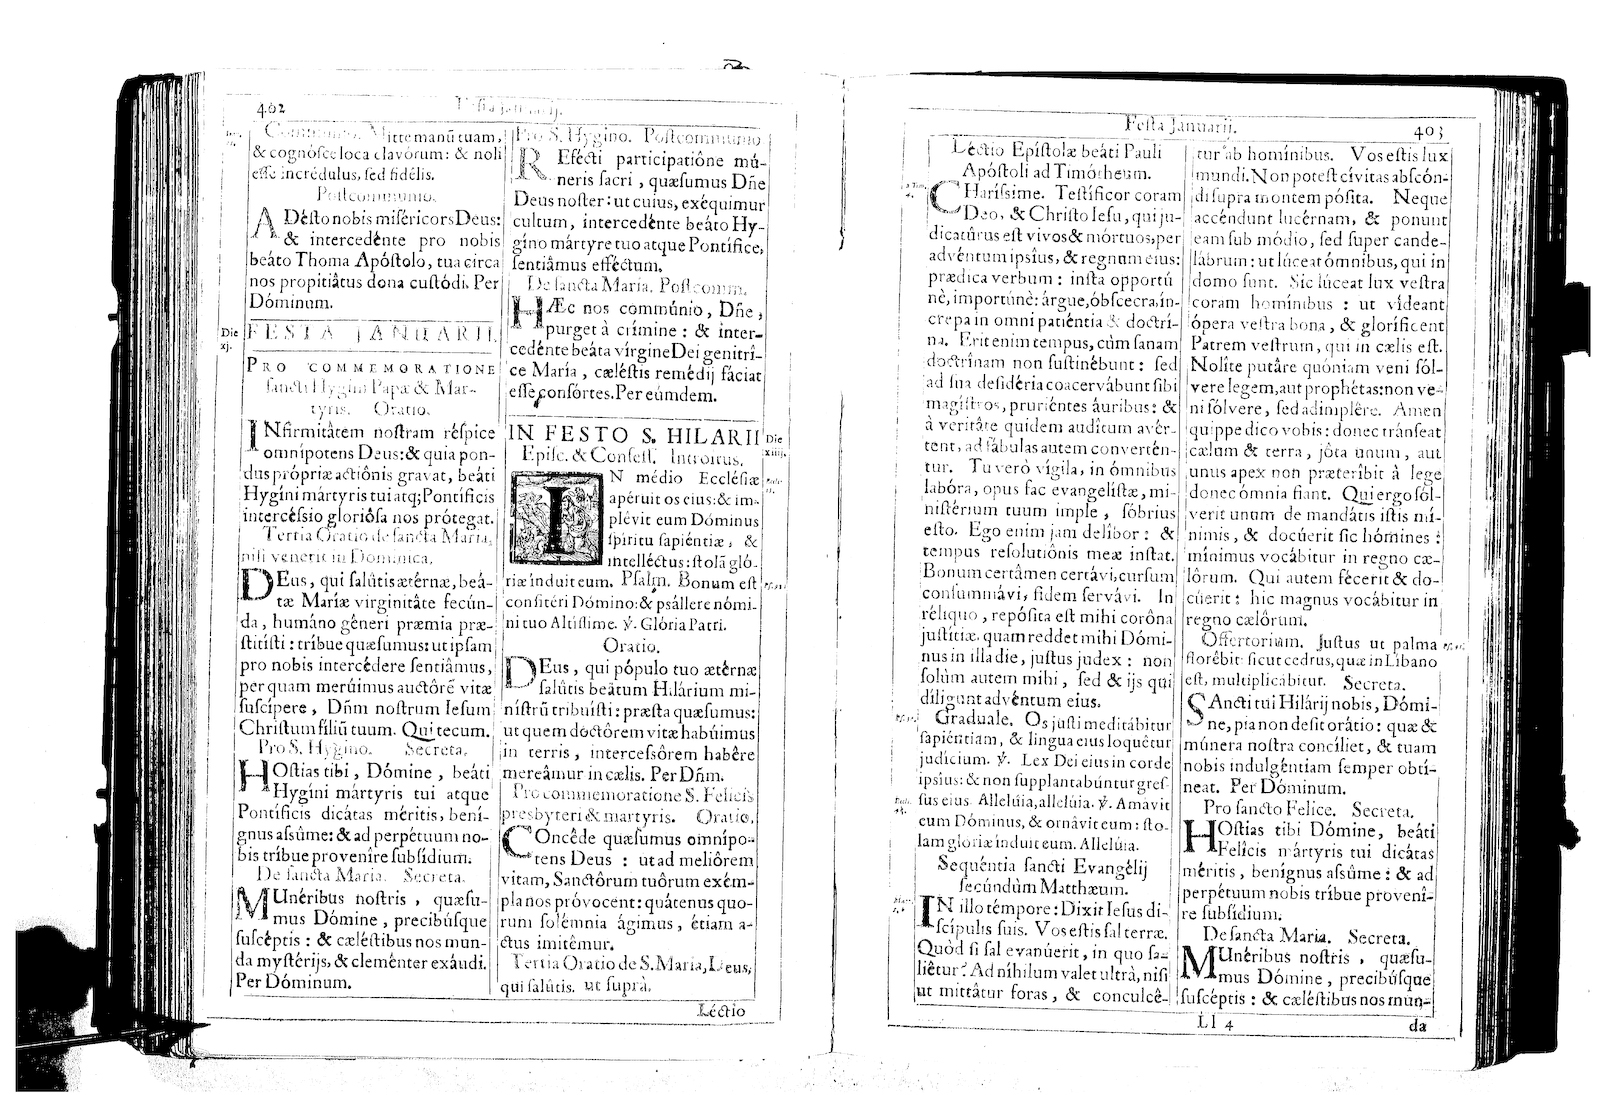 402
Festa Januarij.
Communio. Mitte manũ tuam,
& cognósce loca clavórum: & noli
esse incrédulus, sed fidélis.
Postcommunio.
ADésto nobis miséricors Deus:
& intercedénte pro nobis
beáto Thoma Apóstolo, tua circa
nos propitiâtus dona custódi. Per
Dóminum.
Die
xj.
FESTA JANUARII.
PRO COMMEMORATIONE
sancti Hygini Papæ & Mar-
tyris. Oratio.
INfirmitâtem nostram réspice
omnípotens Deus: & quia pon-
dus própriæ actiônis gravat, beáti
Hygíni mártyris tui atq; Pontíficis
intercéssio gloriôsa nos prótegat.
Tertia Oratio de sancta Maria,
nisi venerit in Dominica.
DEus, qui salûtis ætérnæ, beá-
tæ Maríæ virginitâte fecún-
da, humáno géneri præmia præ-
stitísti: tríbue quæsumus: ut ipsam
pro nobis intercédere sentiâmus,
per quam merúimus auctôrẽ vitæ
suscípere, Dñm nostrum Iesum
Christum filiũ tuum. Qui tecum.
Pro S. Hygino. Secreta.
HOstias tibi, Dómine, beáti
Hygíni mártyris tui atque
Pontíficis dicátas méritis, bení-
gnus assûme: & ad perpétuum no-
bis tríbue proveníre subsídium.
De sancta Maria. Secreta.
MUnéribus nostris, quæsu-
mus Dómine, precibúsque
suscéptis: & cæléstibus nos mun-
da mystérijs, & cleménter exáudi.
Per Dóminum.
Pro S. Hygino. Postcommunio
REfécti participatiône mú-
neris sacri, quæsumus Dñe
Deus noster: ut cuius, exéquimur
cultum, intercedénte beáto Hy-
gíno mártyre tuo atque Pontífice,
sentiâmus efféctum.
De sancta Maria. Postcomm.
HÆc nos commúnio, Dñe,
purget à crímine: & inter-
cedénte beáta vírgine Dei genitrî-
ce María, cæléstis remédij fáciat
esse consórtes. Per eúmdem.
IN FESTO S. HILARII
Die
xiiij.
Episc. & Confess. Introitus.
IN médio Ecclésiæ
apéruit os eius: & im-
plévit eum Dóminus
spíritu sapiéntiæ, &
intelléctus: stolâ gló-
riæ índuit eum. Psalm. Bonum est
confitéri Dómino: & psállere nómi-
ni tuo Altíssime. ℣. Glória Patri.
Oratio.
DEus, qui pópulo tuo ætérnæ
salûtis beátum Hilárium mi-
nístrũ tribuísti: præsta quæsumus:
ut quem doctôrem vitæ habúimus
in terris, intercessôrem habêre
mereâmur in cælis. Per Dñm.
Pro commemoratione S. Felicis
presbyteri & martyris. Oratio.
COncéde quæsumus omnípo-
tens Deus: ut ad meliôrem
vitam, Sanctôrum tuôrum exém-
pla nos próvocent: quátenus quo-
rum solémnia ágimus, étiam a-
ctus imitêmur.
Tertia Oratio de S. Maria, Deus,
qui salûtis. ut supra.
Léctio
Festa Januarii.
403
Léctio Epístolæ beáti Pauli
Apóstoli ad Timótheum.
CHaríssime. Testíficor coram
Deo, & Christo Iesu, qui ju-
dicatûrus est vivos & mórtuos, per
advéntum ipsíus, & regnum eius:
prædica verbum: insta opportú
nè, importúnè: árgue, óbsecra, ín-
crepa in omni patiéntia & doctrí-
na. Erit enim tempus, cùm sanam
doctrînam non sustinébunt: sed
ad sua desidéria coacervábunt sibi
magístros, pruriéntes áuribus: &
à veritâte quidem audîtum avér-
tent, ad fábulas autem convertén-
tur. Tu verò vígila, in ómnibus
labóra, opus fac evangelístæ, mi-
nistérium tuum imple, sóbrius
esto. Ego enim jam delíbor: &
tempus resolutiônis meæ instat.
Bonum certâmen certávi, cursum
consummávi, fidem servávi. In
réliquo, repósita est mihi corôna
justítiæ, quam reddet mihi Dómi-
nus in illa die, justus judex: non
solùm autem mihi, sed & ijs qui
díligunt advéntum eius.
Graduale. Os justi meditábitur
sapiéntiam, & lingua eius loquêtur
judícium. ℣. Lex Dei eius in corde
ipsíus: & non supplantabúntur gres-
sus eius. Allelúia, allelúia. ℣. Amávit
eum Dóminus, & ornávit eum: sto-
lam glóriæ índuit eum. Allelúia.
Sequéntia sancti Evangélij
secúndùm Matthæum.
IN illo témpore: Dixit Iesus di-
scípulis suis. Vos estis sal terræ.
Quòd si sal evanúerit, in quo sa-
liêtur? Ad níhilum valet ultrà, nisi
ut mittâtur foras, & conculcê-
tur ab homínibus. Vos estis lux
mundi. Non potest cívitas abscón-
di supra montem pósita. Neque
accéndunt lucérnam, & ponunt
eam sub módio, sed super cande-
lábrum: ut lúceat ómnibus, qui in
domo sunt. Sic lúceat lux vestra
coram homínibus: ut vídeant
ópera vestra bona, & gloríficent
Patrem vestrum, qui in cælis est.
Nolíte putâre quóniam veni sól-
vere legem, aut prophétas: non ve-
ni sólvere, sed adimplêre. Amen
quippe dico vobis: donec tránseat
cælum & terra, jôta unum, aut
unus apex non præteríbit à lege
donec ómnia fiant. Qui ergo sól-
verit unum de mandátis istis mí-
nimis, & docúerit sic hómines:
mínimus vocábitur in regno cæ-
lôrum. Qui autem fécerit & do-
cúerit: hic magnus vocábitur in
regno cælôrum.
Offertorium. Justus ut palma
florébit: sicut cedrus, quæ in Líbano
est, multiplicábitur. Secreta.
SAncti tui Hilárij nobis, Dómi-
ne, pia non desit orátio: quæ &
múnera nostra concíliet, & tuam
nobis indulgéntiam semper obtí-
neat. Per Dóminum.
Pro sancto Felice. Secreta.
HOstias tibi Dómine, beáti
Felícis mártyris tui dicátas
méritis, benígnus assûme: & ad
perpétuum nobis tríbue provení-
re subsídium.
De sancta Maria. Secreta.
MUnéribus nostris, quæsu-
mus Dómine, precibúsque
suscéptis: & cæléstibus nos mun-
Ll 4
da